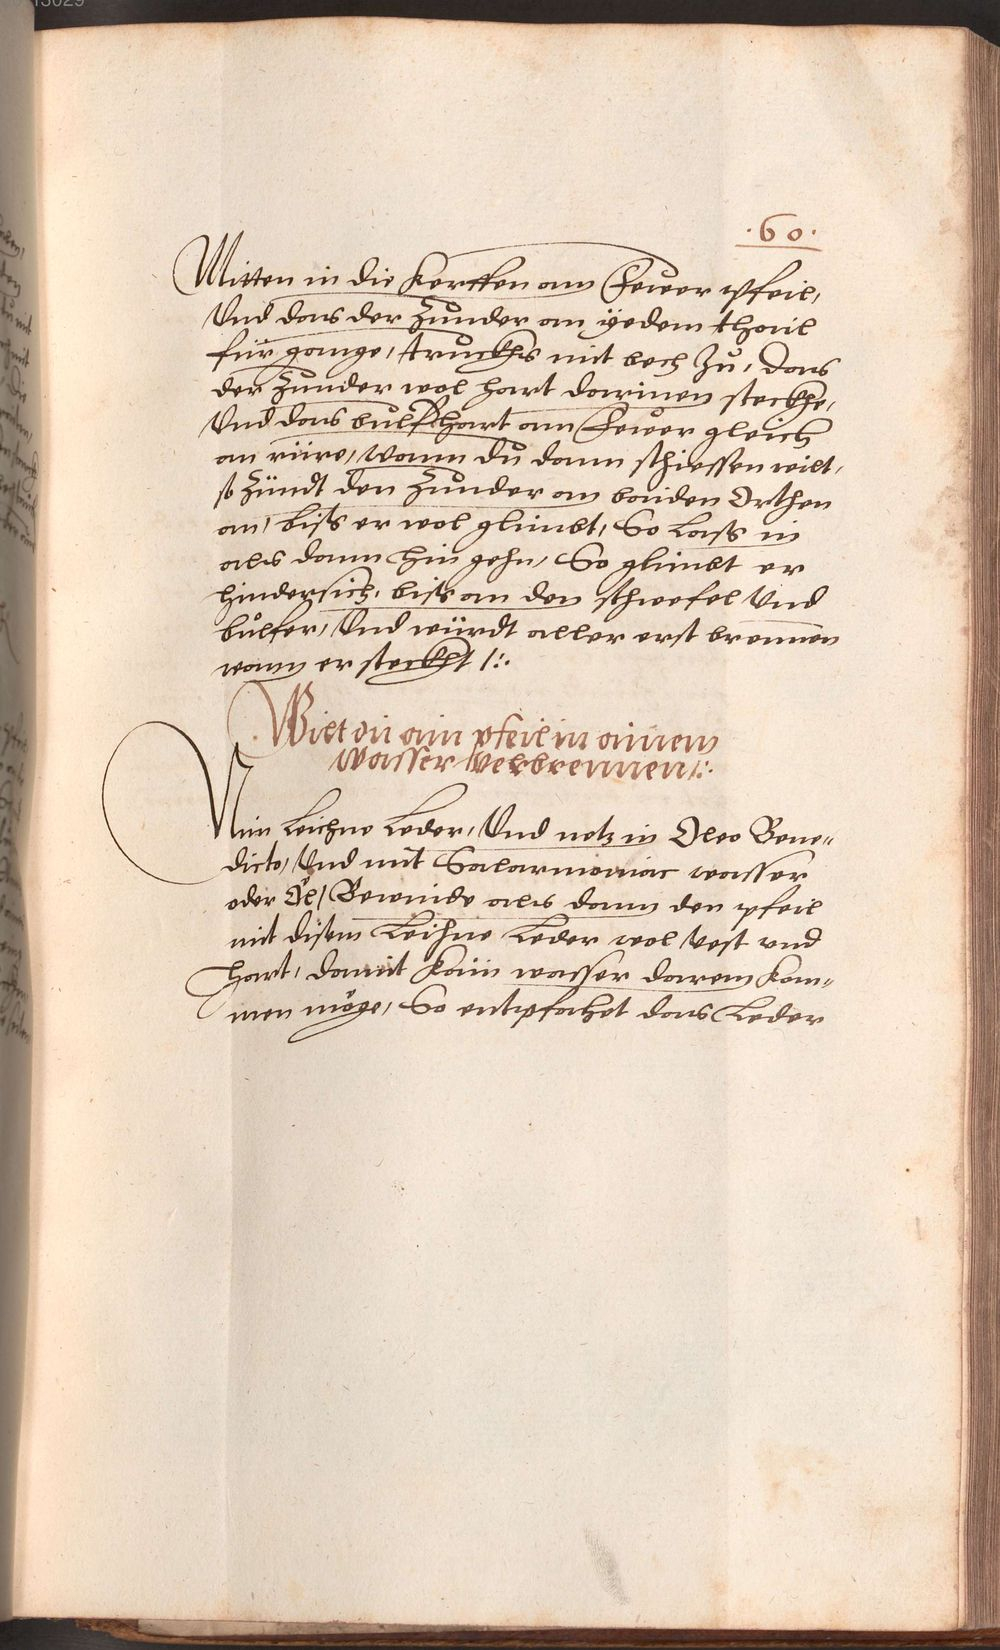 .60.
Mitten in die kerffen am Fewer pfeil,
Vnd das der Zunder an yedem thail
für gange, truckhs mit bech Zů, das
der Zunder wol hart darinnen steckhe,
Vnd das bulffhart am Fewer gleich
an rüre, wann dů dann schiessen wilt,
so Zündt den Zunder an baiden Orthen
an, biss er wol glimbt, So Lass in
als dann hin gehn, So glimbt er
hindersich, biss an den schwefel Vnd
bůlfer, Vnd würdt aller erst brennen
wann er steckht /:.
Wilt du ain pfeil in ainem
wasser Verbrennen /:.
Nim Leichne Leder, Vnd netz in Oleo Bene=
dicto, Vnd mit Salarmoniac wasser
oder Öl, Bewinde als dann den pfeil
mit disem Leihne Leder wol Vest vnd
hart, damit kain wasser darein kom=
men möge, So entpfahet das Leder